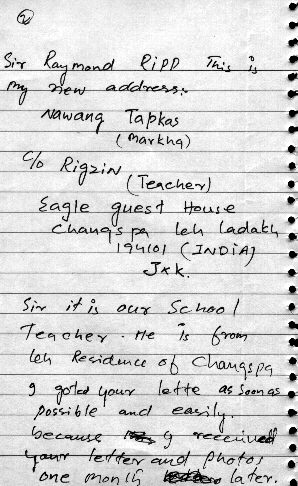 2
Sir Raymond Ripp This is
my new address:-
Nawang Tapkas
(Markha)
C/o Rigzin
(Teacher)
Eagle guest House
Changspa Leh Ladakh
194101 (INDIA)
J&k.
Sir it is our School
Teacher. He is from
Leh Residence of Changspa
I goted your lette as soon as
possible and easily.
because I received
your letter and photos
one month later.